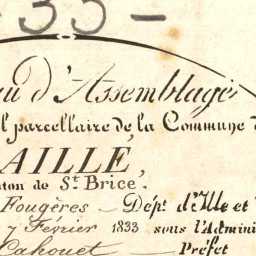 33
au d'Assemblage
l parcellaire de la Commune d
AILLE,
ton de St. Brice.
Fougères — Dépt. d'Ille et
7 Février 1833 sous l'Admini
Cahouet — Préfet